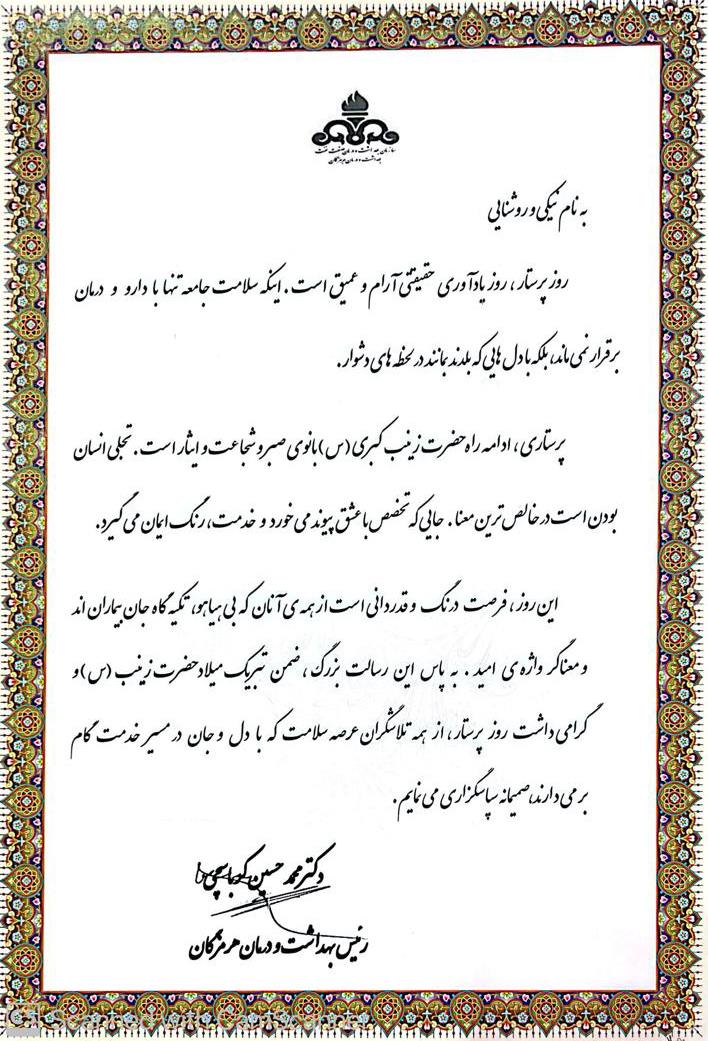 سازمان بهداشت و درمان صنعت نفت
بهداشت و درمان هرمزگان
به نام نیکی و روشنایی
روز پرستار، روز یادآوری حقیقتی آرام و عمیق است. اینکه سلامت جامعه تنها با دارو و درمان
برقرار نمی ماند، بلکه با دل هایی که بلدند بمانند در لحظه های دشوار.
پرستاری، ادامه راه حضرت زینب کبری (س) بانوی صبر و شجاعت و ایثار است. تجلی انسان
بودن است در خالص ترین معنا. جایی که تخصص با عشق پیوند می خورد و خدمت، رنگ ایمان می گیرد.
این روز، فرصت درنگ و قدردانی است از همه ی آنان که بی هیاهو، تکیه گاه جان بیماران اند
و معناگر واژه ی امید. به پاس این رسالت بزرگ، ضمن تبریک میلاد حضرت زینب (س) و
گرامی داشت روز پرستار، از همه تلاشگران عرصه سلامت که با دل و جان در مسیر خدمت گام
بر می دارند، صمیمانه سپاسگزاری می نمایم.
دکتر محمد حسین کرباسچی
رئیس بهداشت و درمان هرمزگان
Scanned with CamScanner